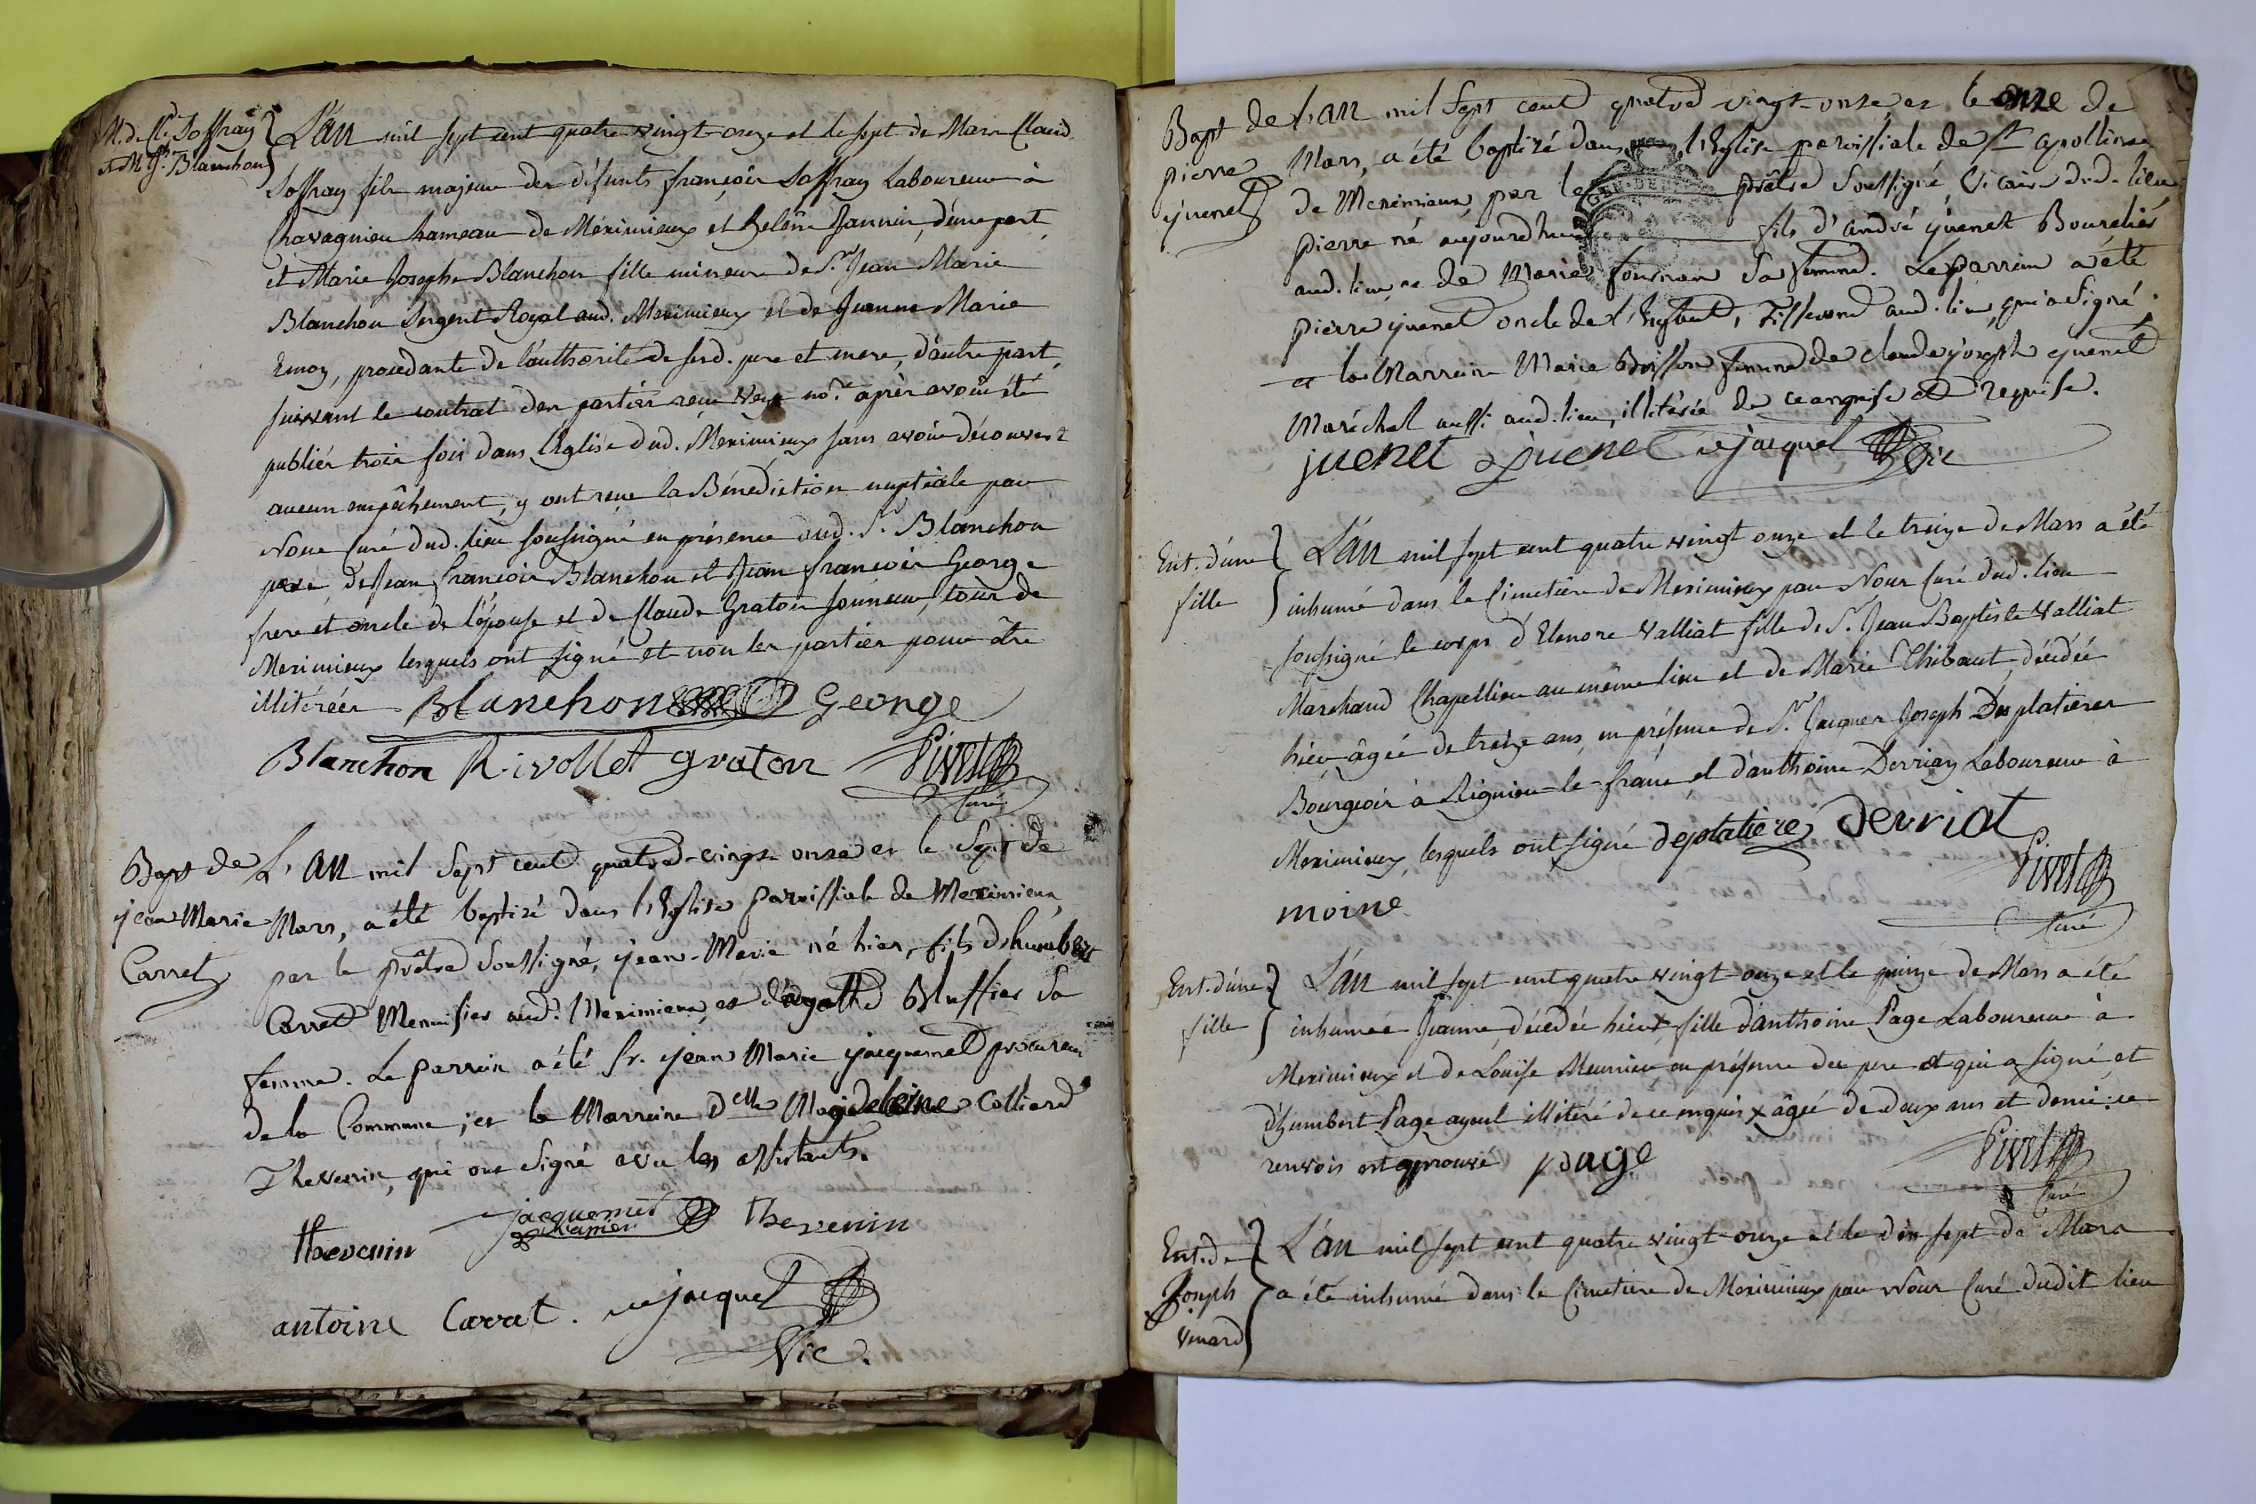 M. de Cl. Joffray
et M. J. Blanchon
L'an mil sept cent quatre vingt-onze et le sept de Mars Claude
Joffray fils majeur des défunts françois Joffray Laboureur à
Chavagnieu hameau de Méximieux et helène Jannin, d'une part,
et Marie Josephe Blanchon fille mineure de Sr. Jean Marie
Blanchon Sergent Royal aud. Meximieux et de Jeanne Marie
, procedante de l'authorité de sesd. pere et mere, d'autre part,
suivant le contrat des parties recu no.re après avoir été
publiés trois fois dans l'Eglise dud. Meximieux sans avoir découvert
aucun empêchement, y ont reçu la Bénédiction nuptiale par
Nous Curé dud. lieu soussigné en présence dud. Sr. Blanchon
pere, de Jean françois Blanchon et Jean françois George
frere et oncle de l'épouse et de Claude Graton sonneur, tous de
Meximieux lesquels ont signé et non les parties pour être
illiterées Blanchon George
Blanchon Rivollet graton Pivet
Curé
Bapt de
jean Marie
Carret
L'an mil Sept cent quatre-vingt-onze et le Sept de
Mars, a été baptisé dans l'Eglise paroissiale de Meximieux
par le prêtre Soussigné, jean-Marie né hier, fils d'humbert
Carret Menuisier aud. Meximieux et d'agathe Bluffier Sa
femme. Le parrain a été Sr. jean Marie jacquemet procureur
de la Commune; et la Marraine Delle Magdeleine Colliard
Thevenin, qui ont signé avec les assistants.
thevenin jacquemet thevenin
antoine Carret. jacquet
Vic.
Bapt de
pierre
juenet
L'an mil Sept cent quatre vingt-onze et le onze de
Mars, a été baptisé dans l'Eglise paroissiale de St apollinaire
de Meximieux, par le prêtre Soussigné, Vicaire dud. lieu
pierre né aujourdhui fils d'andré juenet Bourelier
aud. lieu, et de Marie fournon Sa femme. Le parrain a été
pierre juenet oncle de l'Enfant, Tisserand aud. lieu, qui a Signé;
et la Marraine Marie Boisson femme de claude joseph juenet
Maréchal aussi aud. lieu, illitérée de ce enquise et requise.
juenet juenet jacquet Vic
Ent. d'une
fille
L'an mil sept cent quatre vingt onze et le treize de Mars a été
inhumé dans le Cimetière de Meximieux par Nous Curé dud. lieu
soussigné le corps d'Elenore Valliat fille de Sr. Jean Baptiste Valliat
Marchand Chapellier au même lieu et de Marie Thibaut, décédée
hier âgée de treize ans, en présence de Sr. Jacques Joseph Desplatieres
Bourgeois à Rignieu-le-franc, et d'anthoine Devriay Laboureur à
Meximieux, lesquels ont signé deplatieres Devriat
Pivet
moine
Curé
Ent. d'une
fille
L'an mil sept cent quatre vingt-onze et le quinze de Mars a été
inhumée Jeanne, décédée hier x fille d'anthoine Page Laboureur à
Meximieux et de Louise Meunier, en présence du pere qui a signé, et
d'humbert Page ayeul illitéré de ce enquis x âgée de deux ans et demi: ce
renvois est approuvé page Pivet
Curé
Ent. de
Joseph
L'an mil sept cent quatre vingt-onze et le dix sept de Mars
a été inhumé dans le Cimetiere de Meximieux par Nous Curé dudit lieu